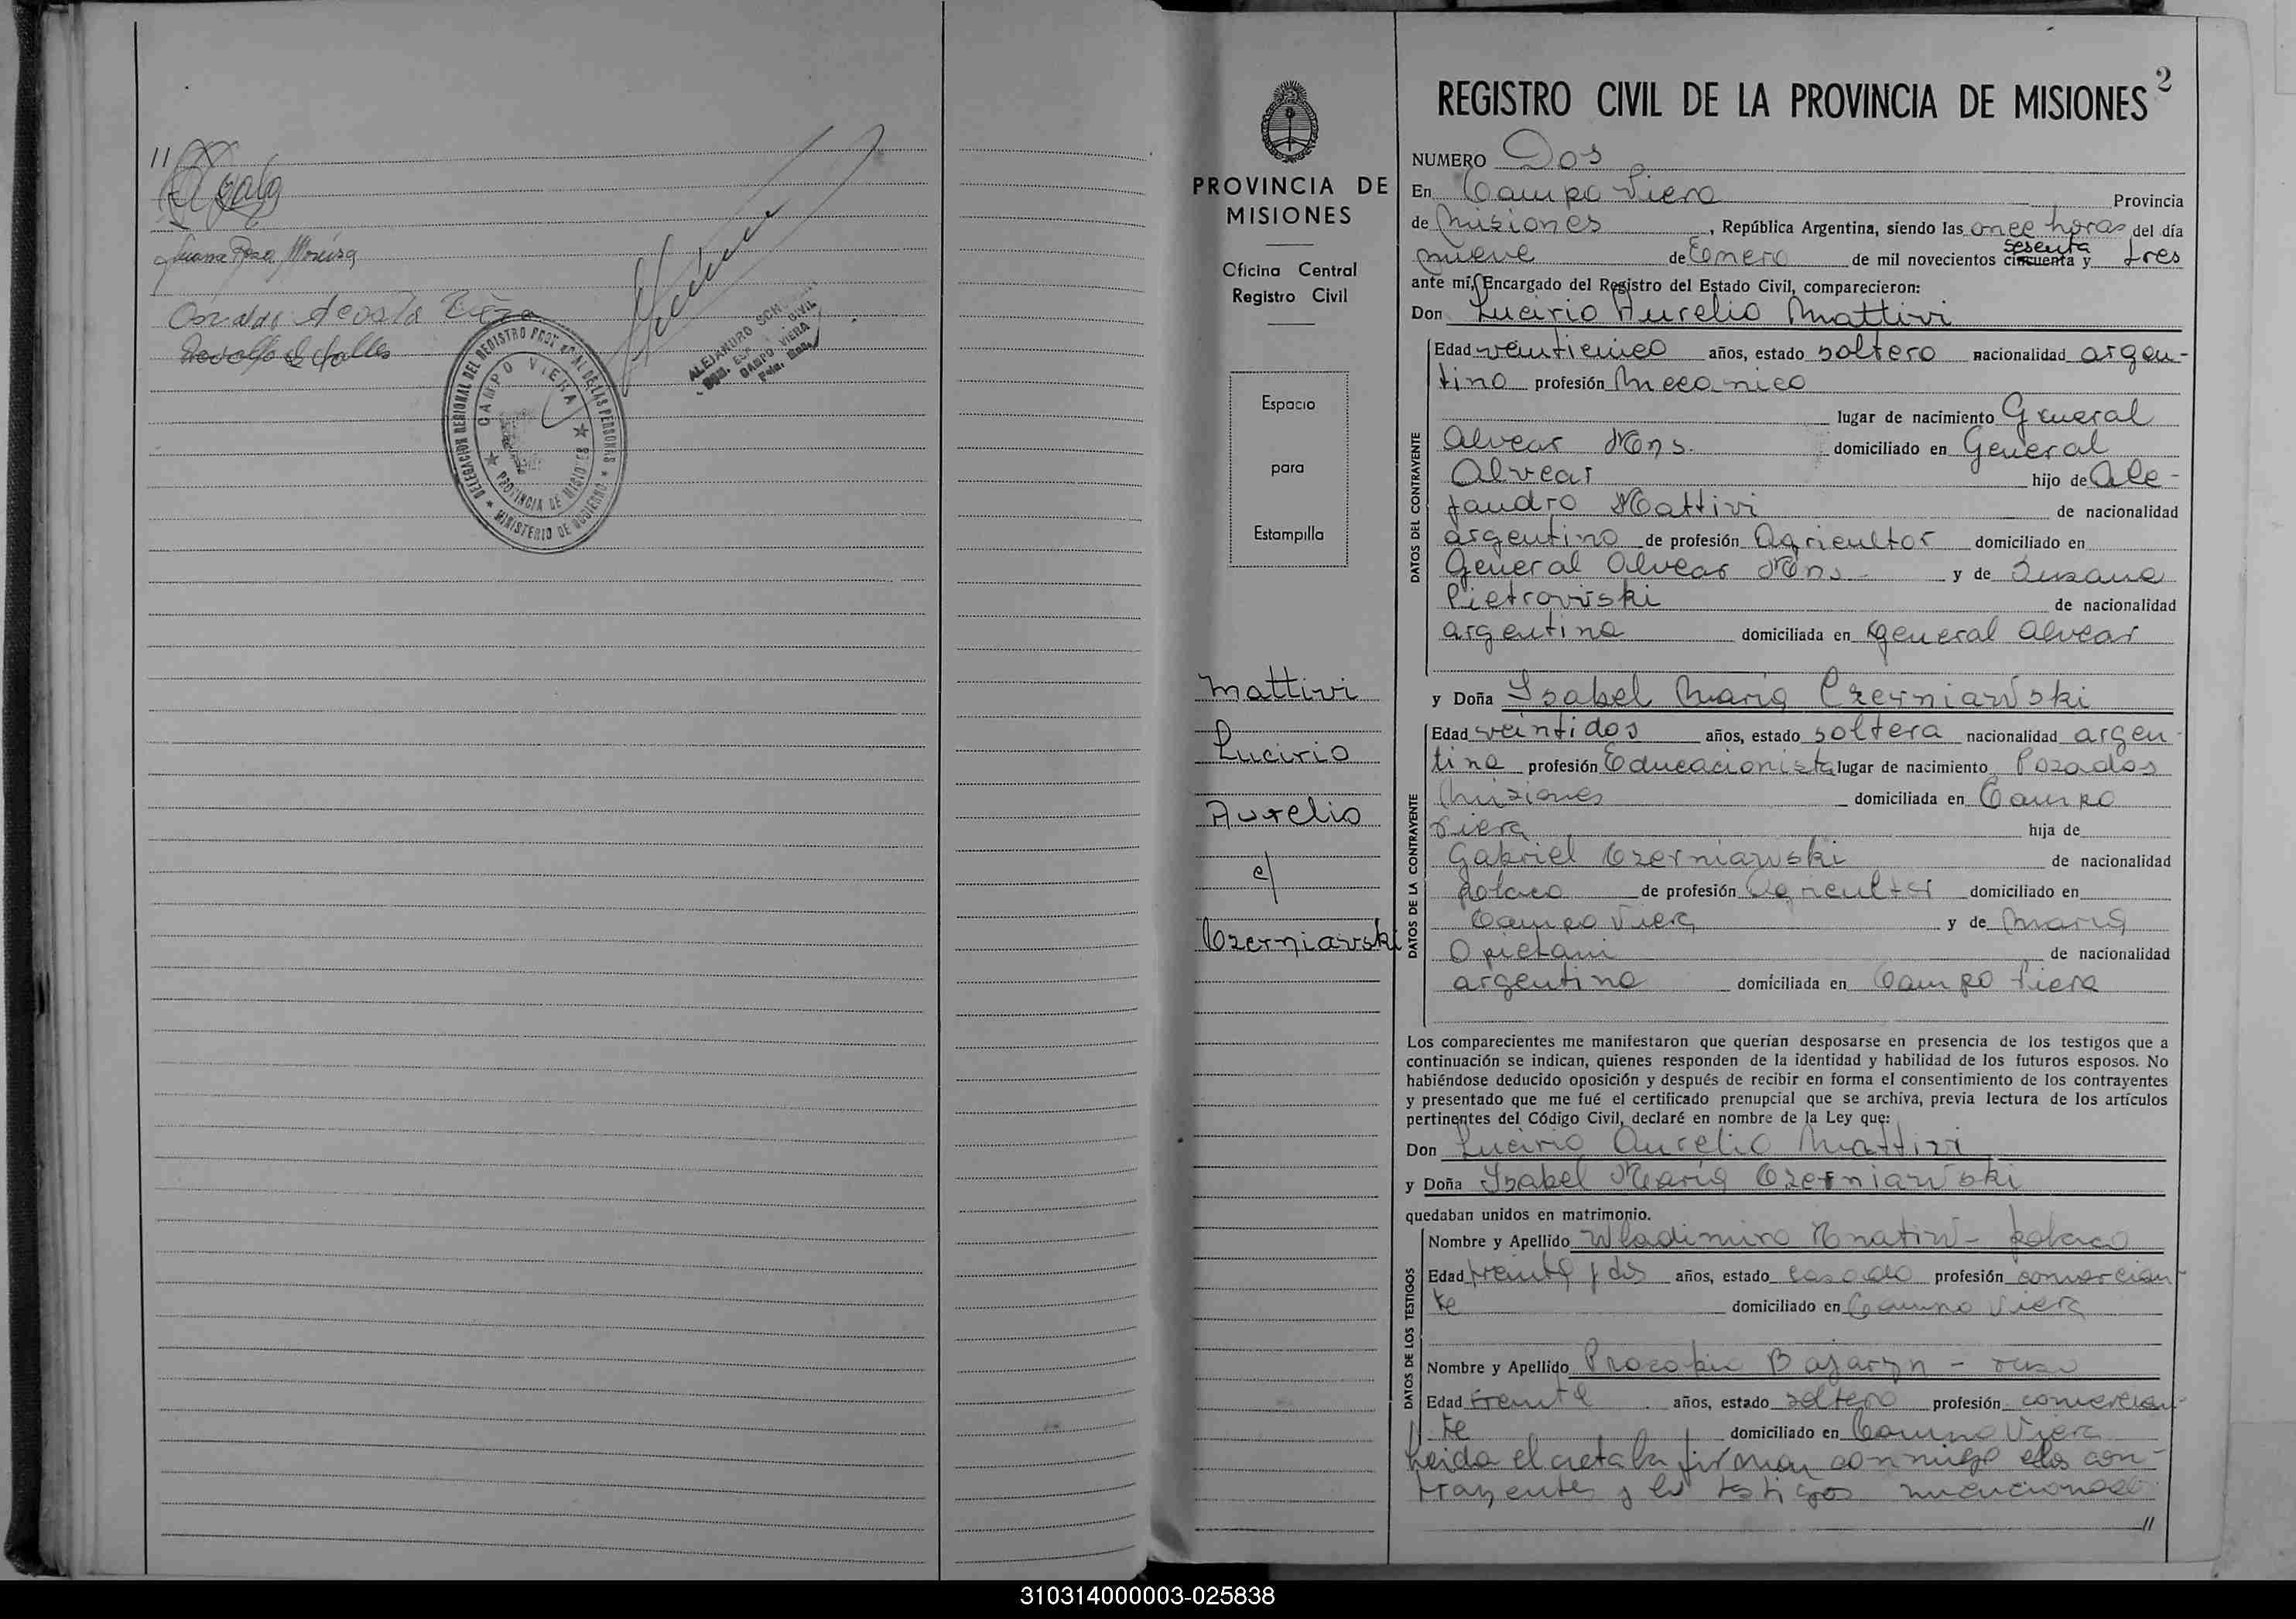 11
Juana Rosa Moreira
Osvaldo Acosta
Rodolfo
DELEGACION REGIONAL DEL REGISTRO PROV. DE LAS PERSONAS
CAMPO VIERA
PROVINCIA DE MISIONES
MINISTERIO DE GOBIERNO
ALEJANDRO SCH
CIVIL
CAMPO VIERA
PROVINCIA DE
MISIONES
Oficina Central
Registro Civil
Espacio
para
Estampilla
Mattivi
Lucirio
Aurelio
c/
Czerniawski
2
REGISTRO CIVIL DE LA PROVINCIA DE MISIONES
NUMERO Dos
En Campo Viera Provincia
de Misiones, República Argentina, siendo las once horas del día
sesenta
nueve de Enero de mil novecientos cincuenta y tres
ante mí, Encargado del Registro del Estado Civil, comparecieron:
Don Lucirio Aurelio Mattivi
Edad veinticinco años, estado soltero nacionalidad argen-
tino profesión Mecanico
lugar de nacimiento General
Alvear Mns. domiciliado en General
Alvear hijo de Ale-
jandro Mattivi de nacionalidad
argentino de profesión Agricultor domiciliado en
General Alvear Mns. y de Susana
Pietrowski de nacionalidad
argentina domiciliada en General Alvear
DATOS DEL CONTRAYENTE
y Doña Isabel María Czerniawski
Edad veintidos años, estado soltera nacionalidad argen-
tina profesión Educacionista lugar de nacimiento Posadas
Misiones domiciliada en Campo
Viera hija de
Gabriel Czerniawski de nacionalidad
polaco de profesión Agricultor domiciliado en
Campo Viera y de María
Opietani de nacionalidad
argentina domiciliada en Campo Viera
DATOS DE LA CONTRAYENTE
Los comparecientes me manifestaron que querían desposarse en presencia de los testigos que a
continuación se indican, quienes responden de la identidad y habilidad de los futuros esposos. No
habiéndose deducido oposición y después de recibir en forma el consentimiento de los contrayentes
y presentado que me fué el certificado prenupcial que se archiva, previa lectura de los artículos
pertinentes del Código Civil, declaré en nombre de la Ley que:
Don Lucirio Aurelio Mattivi
y Doña Isabel María Czerniawski
quedaban unidos en matrimonio.
Nombre y Apellido Wladimiro - polaco
Edad treinta y dos años, estado casado profesión comercian-
te domiciliado en Campo Viera
Nombre y Apellido Procopio Bajaryn - ruso
Edad treinta años, estado soltero profesión comercian-
te domiciliado en Campo Viera
DATOS DE LOS TESTIGOS
Leida el acta la firman conmigo los con-
trayentes y los testigos mencionados
//
310314000003-025838